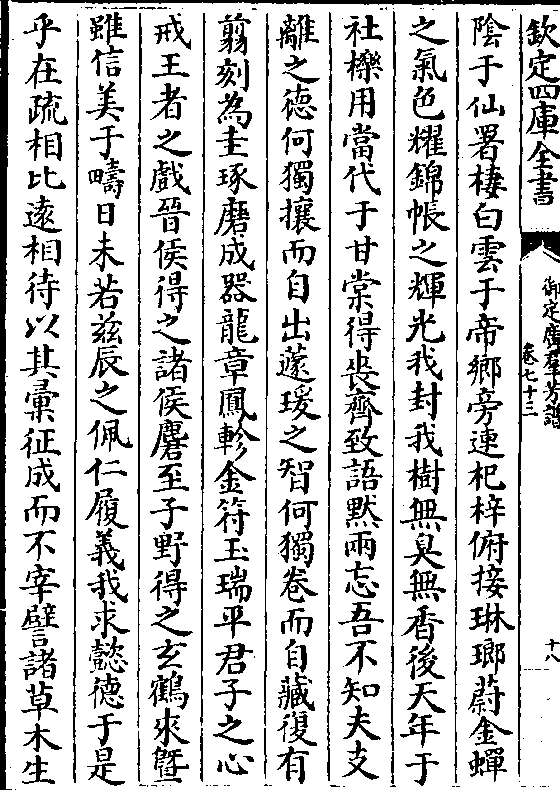 欽定四庫全書
御定廣羣芳譜
卷七十三
十八
陰于仙署棲白雲于帝鄉旁連杞梓俯接琳瑯蔚金蟬
之氣色耀錦帳之輝光我封我樹無臭無香後天年于
社櫟用當代于甘棠得喪齊致語默兩忘吾不知夫支
離之德何獨攘而自出蘧瑗之智何獨卷而自藏復有
翦刻為圭琢磨成器龍章鳳軫金符玉瑞平君子之心
戒王者之戲晉侯得之諸侯麕至子野得之玄鶴來曁
雖信美于疇日未若兹辰之佩仁履義我求懿德于是
乎在疏相比遠相待以其彚征成而不宰譬諸草木生